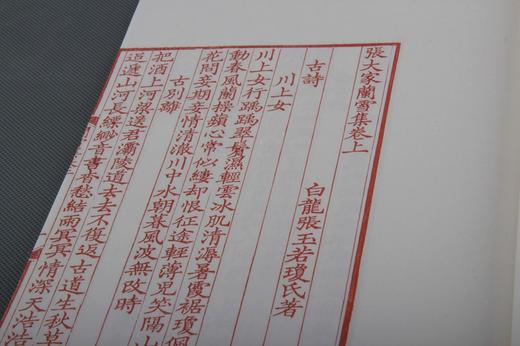 張大家蘭雪集卷上
白龍張玉若瓊氏著
古詩
川上女
川上女行踽踽翠鬢濕輕雲冰肌清溽暑霞裾瓊佩
動春風蘭操蘋心常似縷却恨征途輕薄兒笑隔山
花問妾期妾情清澈川中水朝暮風波無改時
古別離
把酒上河梁送君灞陵道去去不復返古道生秋草
迢遞山河長縹緲音書杳愁結雨冥冥情深天浩浩